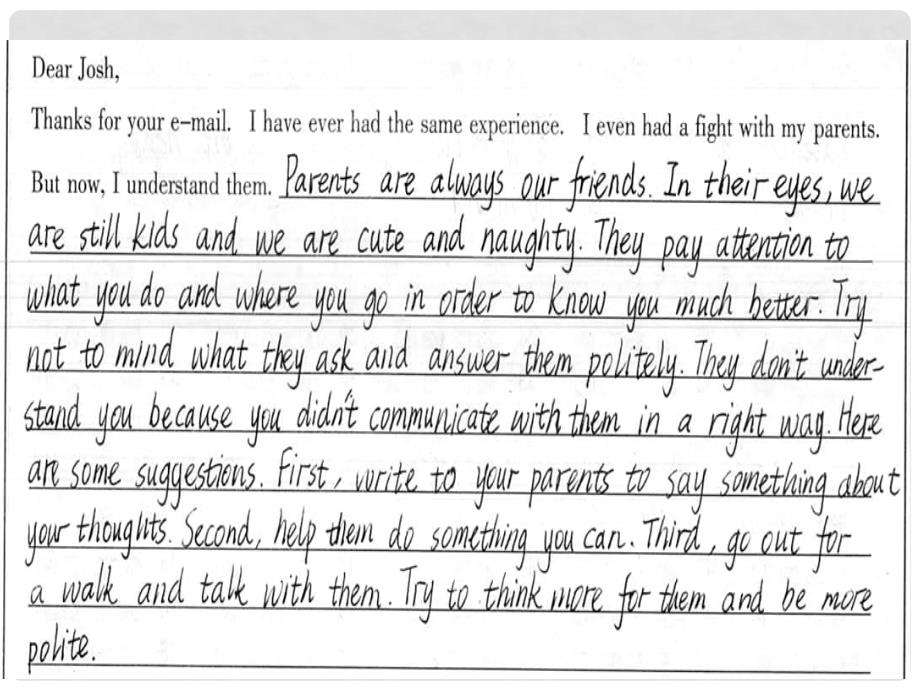 Dear Josh,
Thanks for your e-mail. I have ever had the same experience. I even had a fight with my parents.
But now, I understand them. Parents are always our friends. In their eyes, we
are still kids and we are cute and naughty. They pay attention to
what you do and where you go in order to know you much better. Try
not to mind what they ask and answer them politely. They don't under-
stand you because you didn't communicate with them in a right way. Here
are some suggestions. First, write to your parents to say something about
your thoughts. Second, help them do something you can. Third, go out for
a walk and talk with them. Try to think more for them and be more
polite.